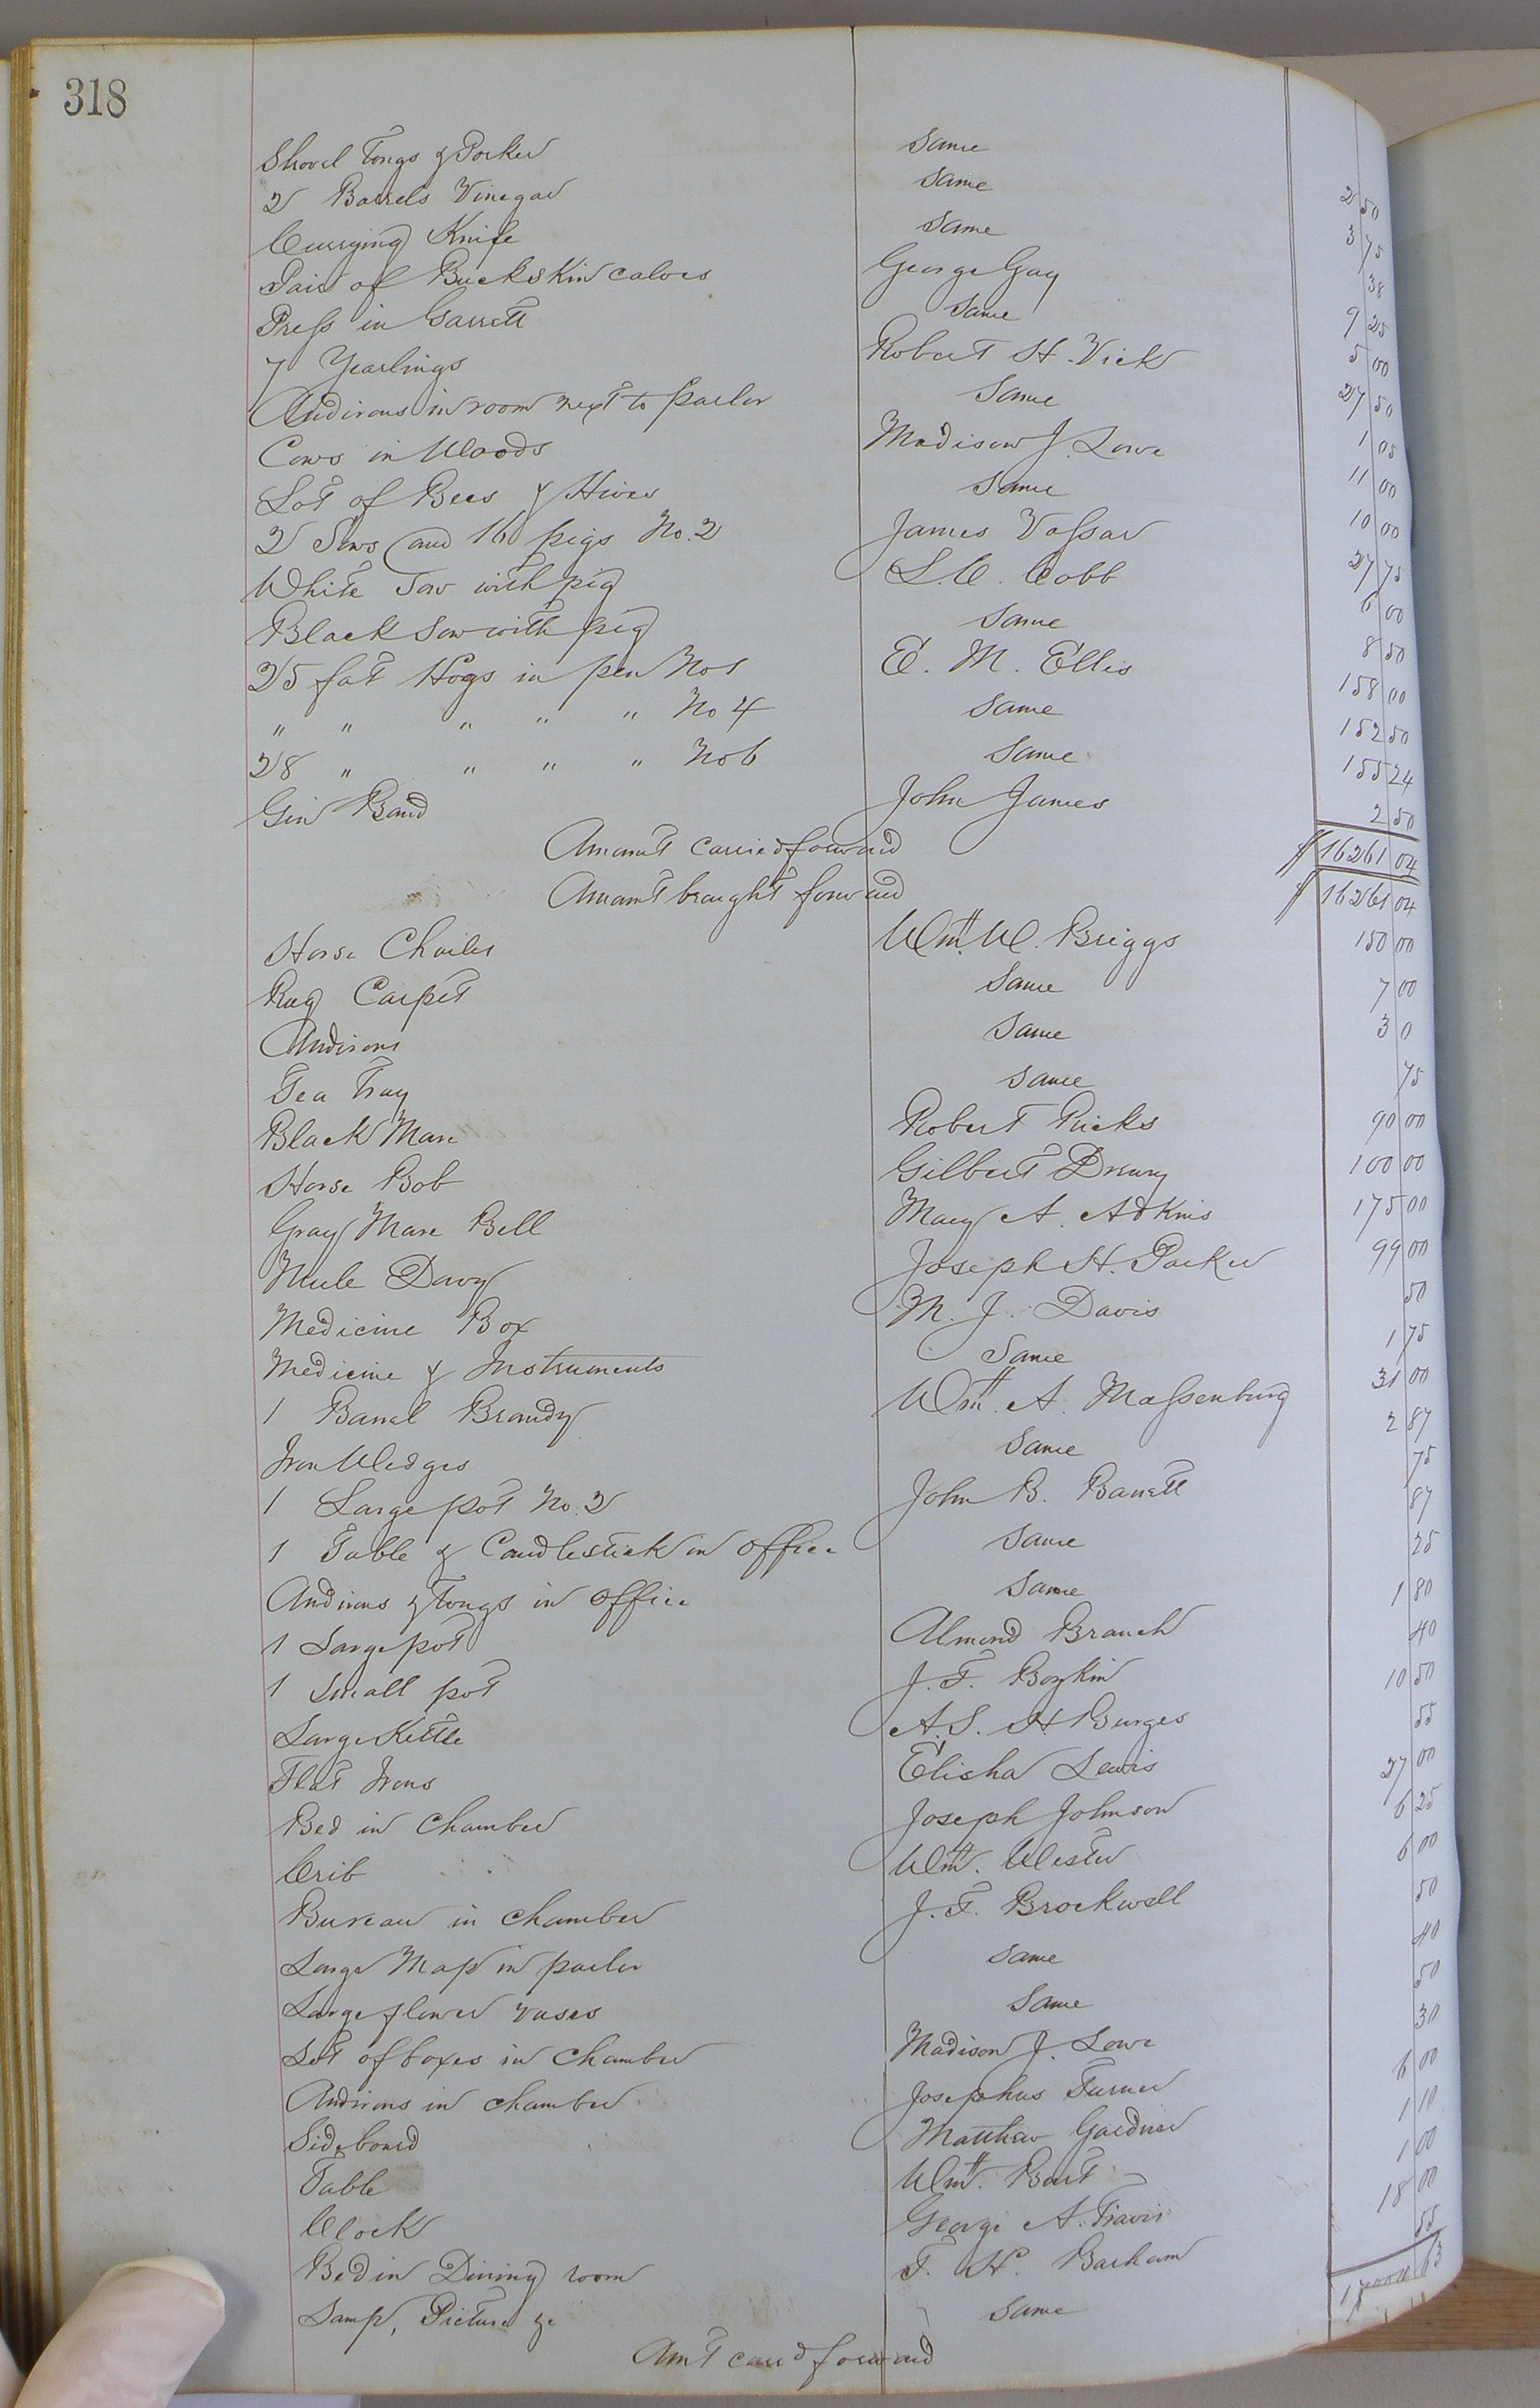 318
Shovel Tongs & Poker Same 2 50
2 Barrels Vinegar Same 3 75
Currying Knife Same 38
Pair of Buckskin calves George Gay 9 25
Press in Garrett Same 5 00
7 Yearlings Robert H. Vick 27 50
Andirons in room next to parlor Same 1 05
Cows in Woods Madison J. Lowe 11 00
Lot of Bees & Hives Same 10 00
2 Sows and 16 pigs No. 2 James Vassar 27 75
White Sow with pig L. C. Cobb 6 00
Black Sow with pig Same 8 50
25 fat Hogs in pen No 1 E. M. Ellis 158 00
" " " " " No 4 Same 152 50
28 " " " " No 6 Same 155 24
Gin Band John James 2 50
Amount carried forward $ 16261 04
Amount brought forward $ 16261 04
Horse Charles Wm. W. Briggs 150 00
Rug Carpet Same 7 00
Andirons Same 3 0
Tea Tray Same 75
Black Mare Robert Ricks 90 00
Horse Bob Gilbert Drewry 100 00
Gray Mare Bell Mary A. Adkins 175 00
Mule Davy Joseph H. Parker 99 00
Medicine Box M. J. Davis 50
Medicine & Instruments Same 1 75
1 Barrel Brandy Wm. A. Massenburg 31 00
Iron Wedges Same 2 87
1 Large pot No. 2 John B. Barrett 75
1 Table & Candlestick in office Same 87
Andirons & Tongs in office Same 25
1 Large pot Almond Branch 1 80
1 Small pot J. F. Boykin 40
Large Kettle A. S. H. Burges 10 50
Flat Irons Elisha Lewis 55
Bed in Chamber Joseph Johnson 27 00
Crib Wm. Wester 6 25
Bureau in Chamber J. F. Brockwell 6 00
Large Map in parlor Same 50
Large flower vases Same 40
Lot of boxes in Chamber Madison J. Lowe 50
Andirons in Chamber Josephus Turner 30
Sideboard Matthew Gardner 6 00
Table Wm. Bart 1 10
Clock George A. Travis 1 00
Bed in Dining room F. H. Barham 18 00
Lamp, Picture &c Same 55
Am't carr'd forward